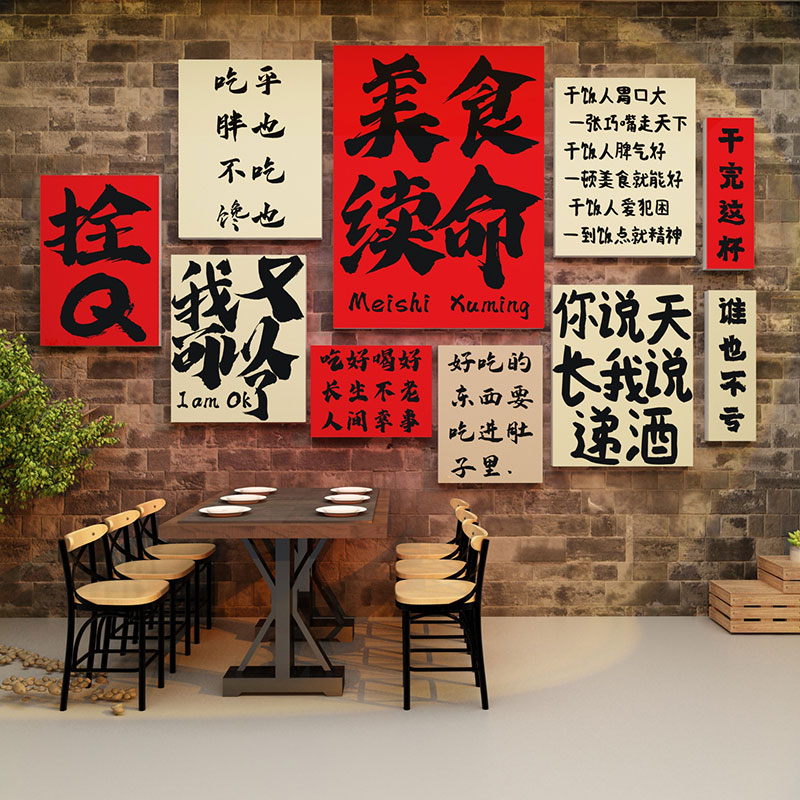 拴
Q
吃乎
胖也
不吃
馋也
我又
可以
了
I am Ok
美食
续命
Meishi Xuming
吃好喝好
长生不老
人间幸事
好吃的
东西要
吃进肚
子里.
干饭人胃口大
一张巧嘴走天下
干饭人脾气好
一顿美食就能好
干饭人爱犯困
一到饭点就精神
你说天
长我说
递酒
干完这杯
谁也不亏